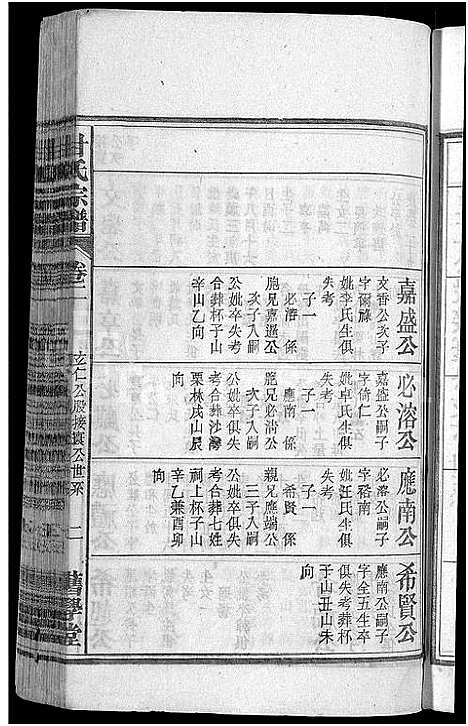 嘉盛公
文香公次子
字彌祿
妣李氏生俱
失考
子一
必溶 係
胞兄嘉選公
次子入嗣
公妣卒失考
合葬杯子山
辛山乙向
必溶公
嘉盛公嗣子
字倚仁
妣卓氏生俱
失考
子一
應南 係
胞兄必清公
次子入嗣
公妣卒俱失
考合葬沙灣
栗林戌山辰
向
應南公
必溶公嗣子
字裕南
妣汪氏生俱
失考
子一
希賢 係
親兄應端公
三子入嗣
公妣卒俱失
考合葬七姓
祠上杯子山
辛乙兼酉卯
向
希賢公
應南公嗣子
字全五生卒
俱失考葬杯
子山丑山未
向
甘氏宗譜
卷二
立仁公股接寰公世系
二
舊學堂